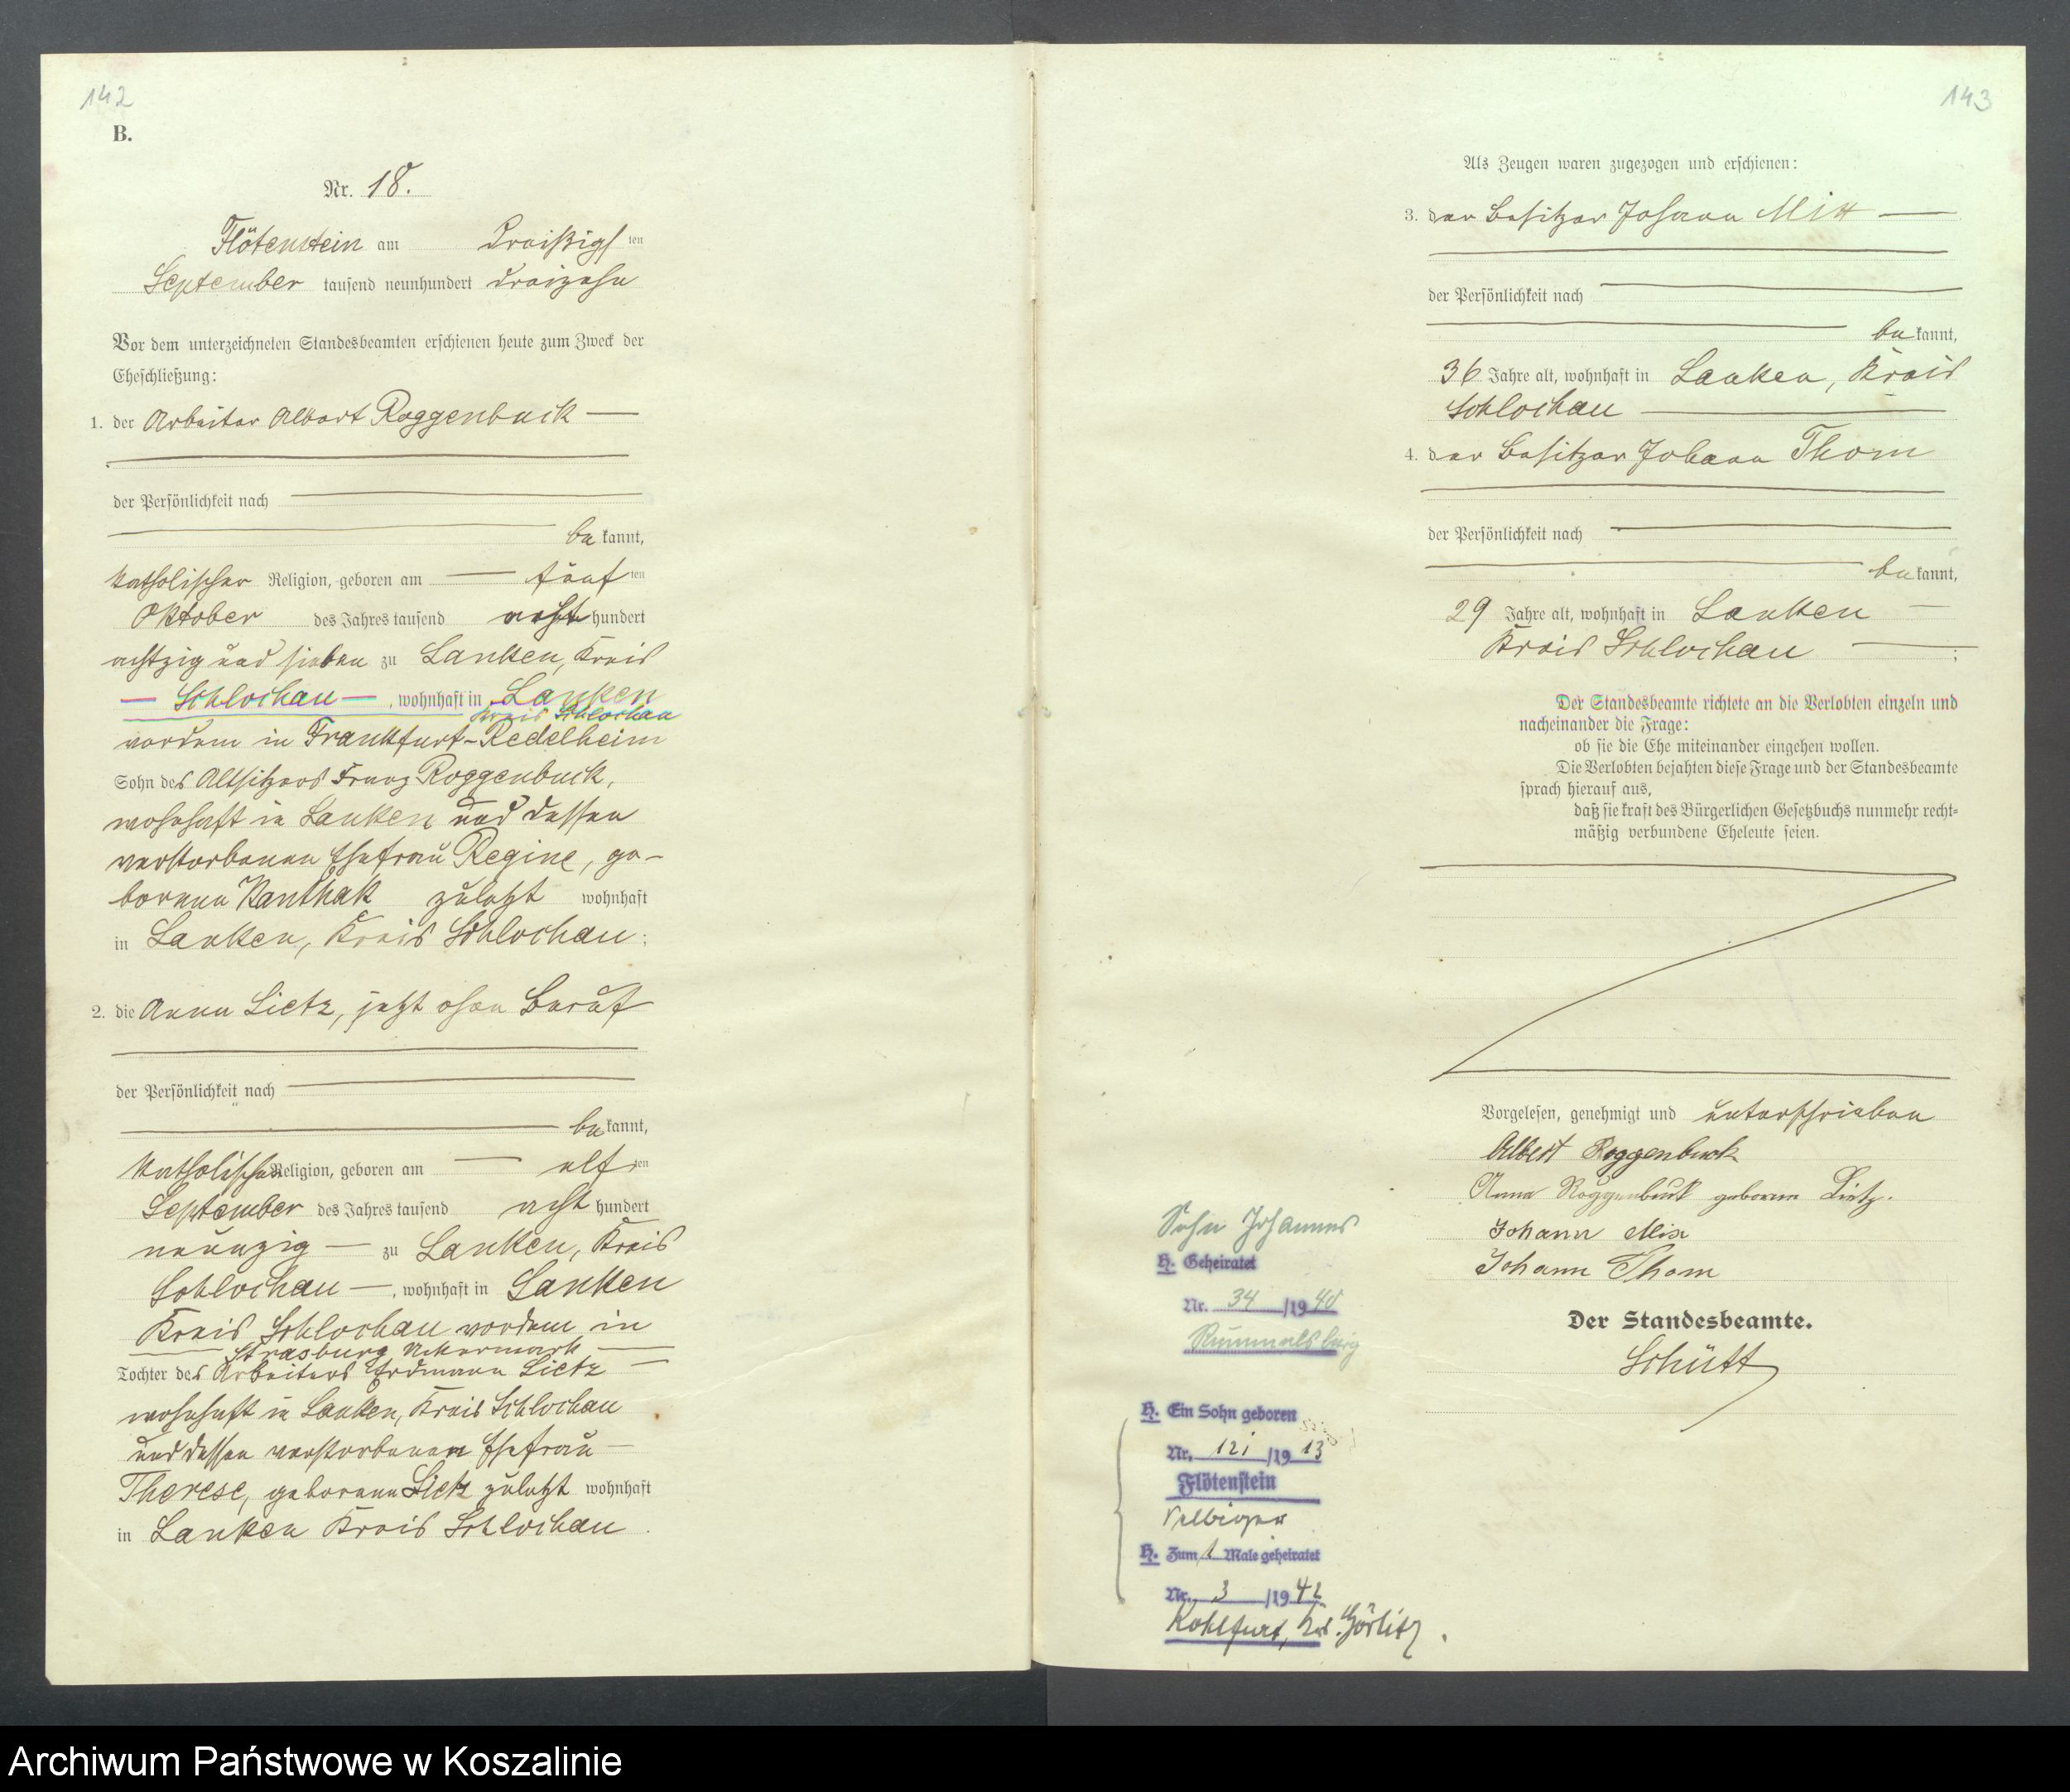 142
B.
Nr. 18.
Flötenstein am Dreißigsten
September tausend neunhundert dreizehn
Vor dem unterzeichneten Standesbeamten erschienen heute zum Zweck der
Eheschließung:
1. der Arbeiter Albert Roggenbuck
der Persönlichkeit nach
bekannt,
katholischer Religion, geboren am fünften
Oktober des Jahres tausend acht hundert
achtzig und sieben zu Lanken, Kreis
Schlochau, wohnhaft in Lanken
Kreis Schlochau
vordem in Frankfurt-Redelheim
Sohn des Altsitzers Franz Roggenbuck,
wohnhaft in Lanken und dessen
verstorbenen Ehefrau Regine, ge-
borene Kanthak zuletzt wohnhaft
in Lanken, Kreis Schlochau;
2. die Anna Lietz, jetzt ohne Beruf
der Persönlichkeit nach
bekannt,
katholischer Religion, geboren am elften
September des Jahres tausend acht hundert
neunzig zu Lanken, Kreis
Schlochau, wohnhaft in Lanken
Kreis Schlochau vordem in
Strasburg Uckermark
Tochter des Arbeiters Erdmann Lietz
wohnhaft in Lanken, Kreis Schlochau
und dessen verstorbenen Ehefrau
Therese, geborene Lietz zuletzt wohnhaft
in Lanken Kreis Schlochau.
143
Als Zeugen waren zugezogen und erschienen:
3. der Besitzer Johann Mix
der Persönlichkeit nach
bekannt,
36 Jahre alt, wohnhaft in Lanken, Kreis
Schlochau
4. der Besitzer Johann Thom
der Persönlichkeit nach
bekannt,
29 Jahre alt, wohnhaft in Lanken
Kreis Schlochau;
Der Standesbeamte richtete an die Verlobten einzeln und
nacheinander die Frage:
ob sie die Ehe miteinander eingehen wollen.
Die Verlobten bejahten diese Frage und der Standesbeamte
sprach hierauf aus,
daß sie kraft des Bürgerlichen Gesetzbuchs nunmehr recht-
mäßig verbundene Eheleute seien.
Vorgelesen, genehmigt und unterschrieben
Albert Roggenbuck
Anna Roggenbuck geborene Lietz.
Johann Mix
Johann Thom
Der Standesbeamte.
Schütt
Sohn Johannes
H. Geheiratet
Nr. 34/1940
Rummelsburg
H. Ein Sohn geboren
Nr. 121/1913
Flötenstein
H. Zum 1 Male geheiratet
Nr. 3/1942
Kohlfurt, Krs. Görlitz.
Archiwum Państwowe w Koszalinie